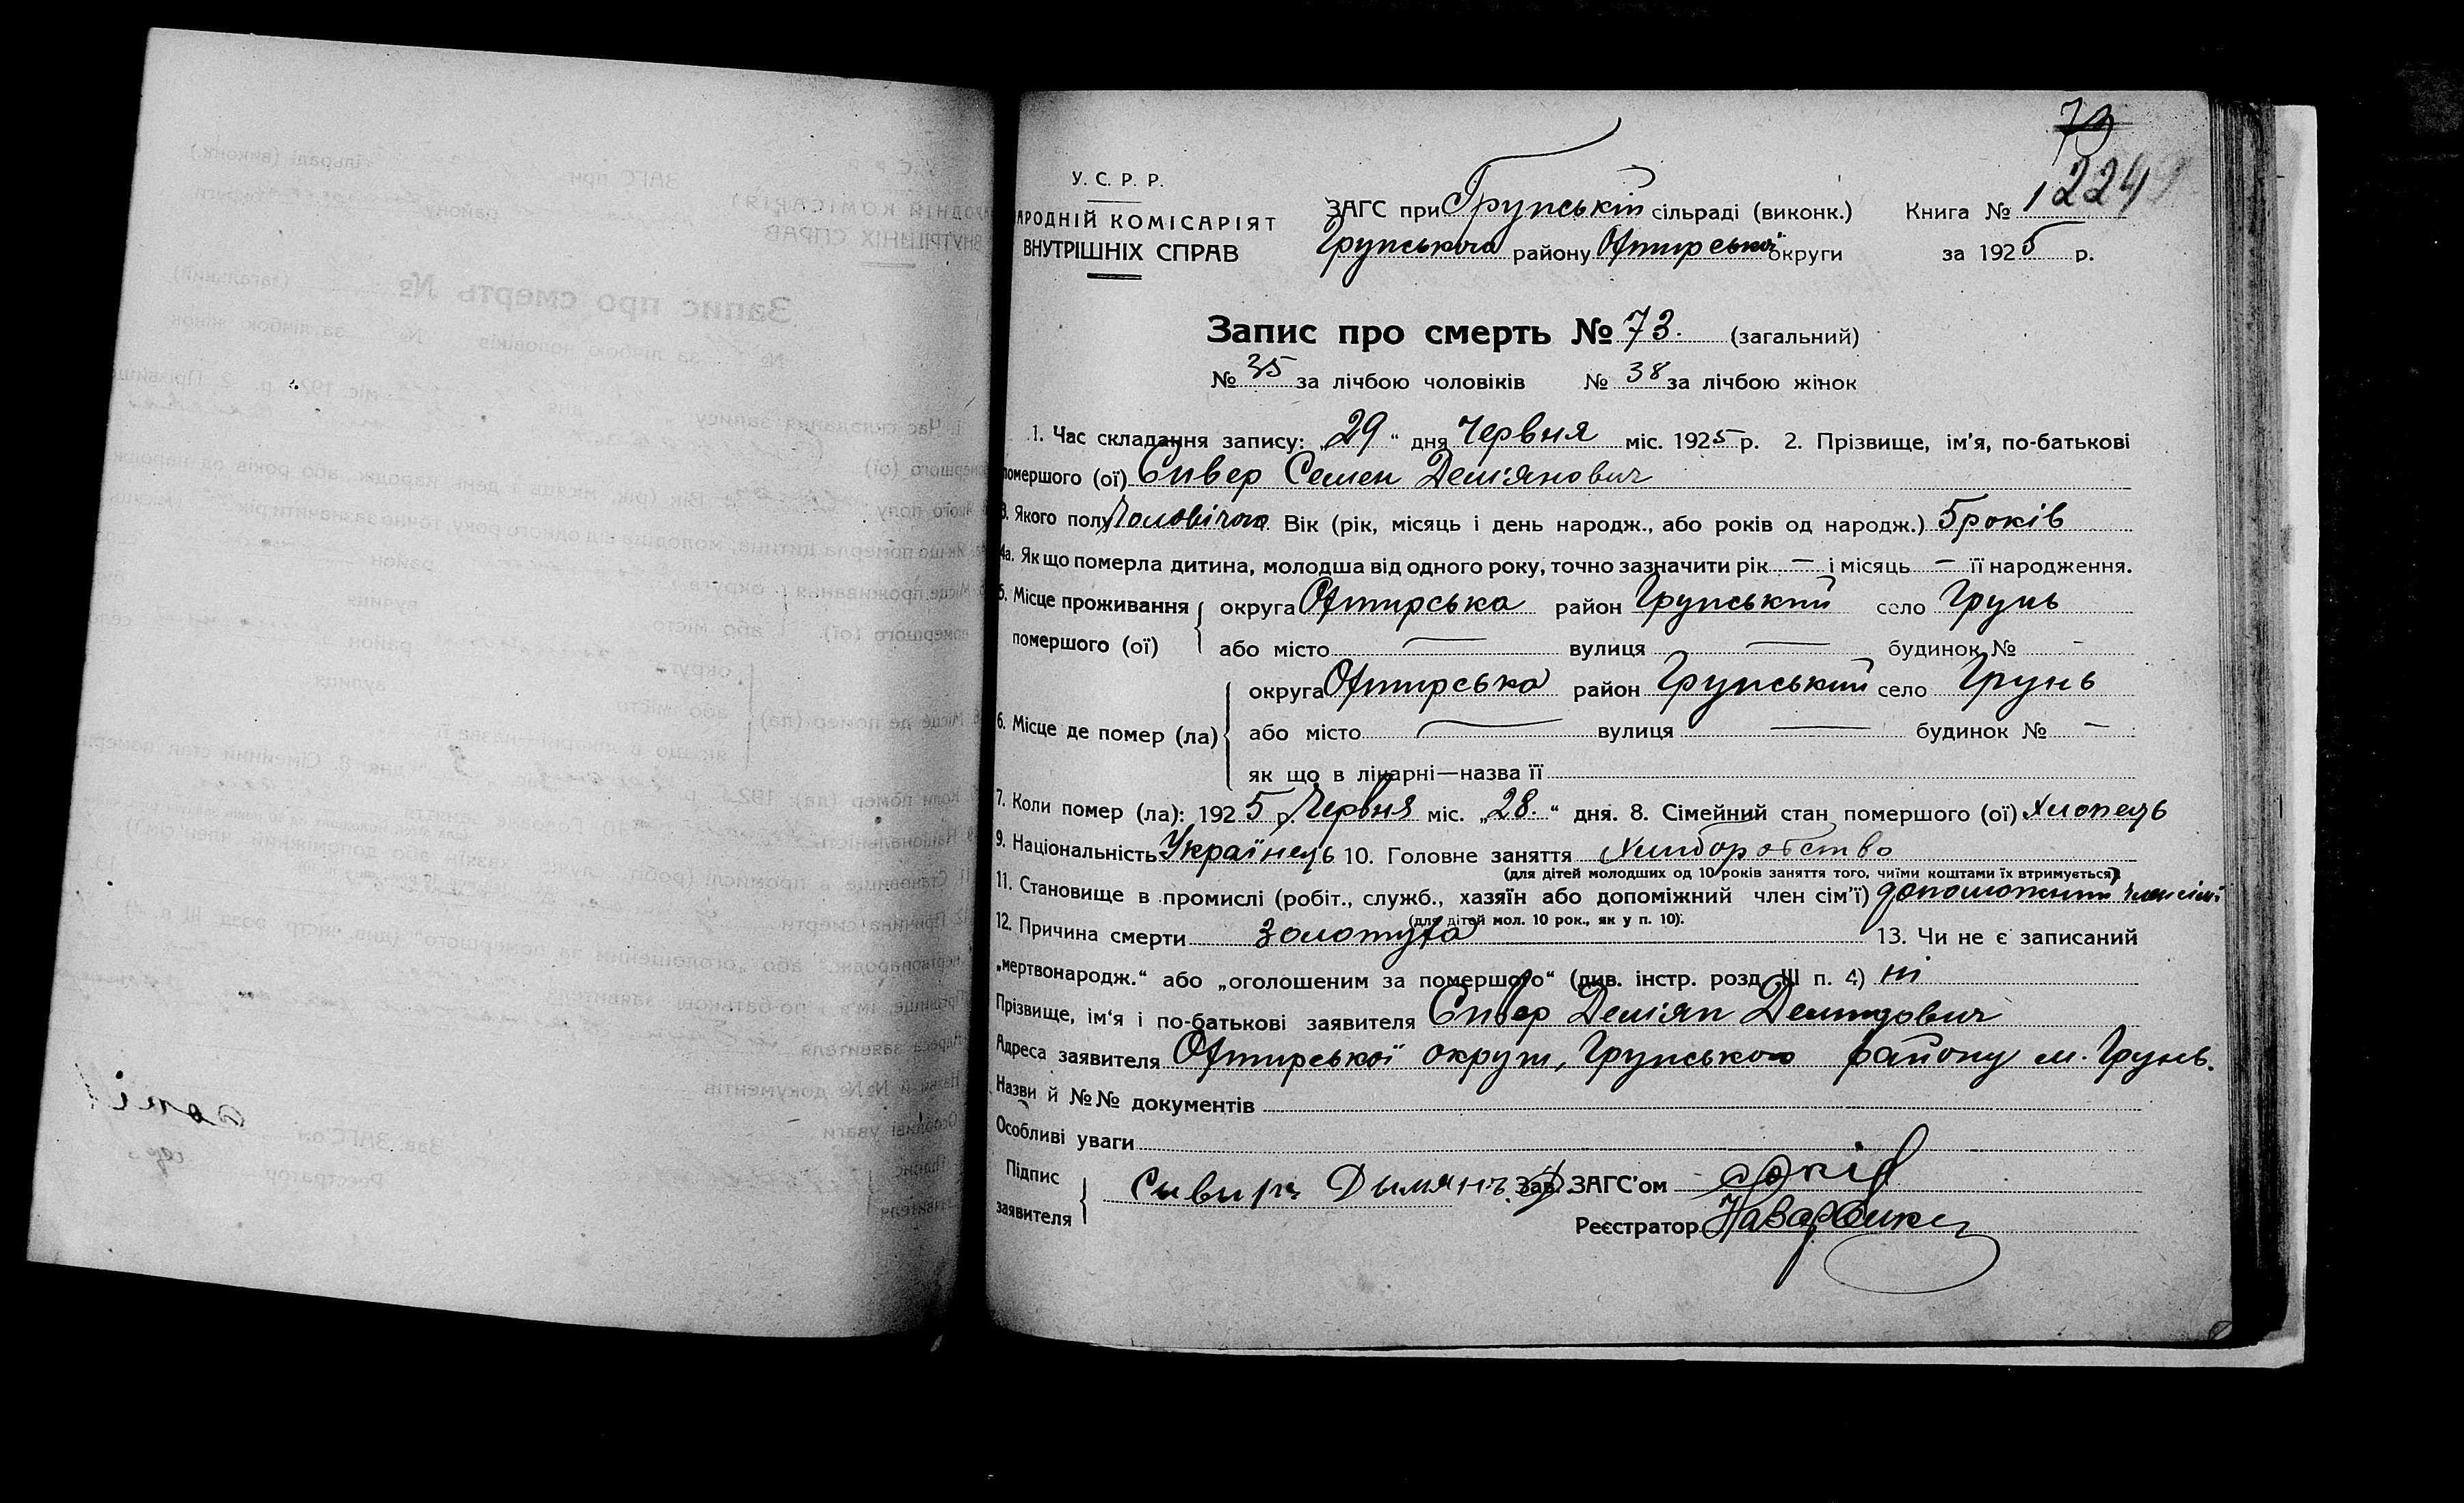 73
У. С. Р. Р.
АРОДНІЙ КОМІСАРІЯТ
ВНУТРІШНІХ СПРАВ
ЗАГС при Грунській сільраді (виконк.)
Грунського району Охтирської округи
Книга № 1 224
за 1925 р.
Запис про смерть № 73. (загальний)
№ 35 за лічбою чоловіків № 38 за лічбою жінок
1. Час складання запису: „29“ дня Червня міс. 1925 р. 2. Прізвище, ім’я, по-батькові
помершого (ої) Сивер Семен Демʼянович
3. Якого полу Чоловічого Вік (рік, місяць і день народж., або років од народж.) 5 років
4а. Як що померла дитина, молодша від одного року, точно зазначити рік — і місяць — її народження.
5. Місце проживання помершого (ої) { округа Охтирська район Грунський село Грунь
або місто — вулиця — будинок № -
6. Місце де помер (ла) { округа Охтирська район Грунський село Грунь
або місто — вулиця — будинок № -
як що в лікарні—назва її
7. Коли помер (ла): 1925 р. Червня міс. „28.“ дня. 8. Сімейний стан помершого (ої) хлопець
9. Національність Українець 10. Головне заняття Хліборобство
(для дітей молодших од 10 років заняття того, чиїми коштами їх втримується)
11. Становище в промислі (робіт., служб., хазяїн або допоміжний член сім’ї) допоможний член сімї
(для дітей мол. 10 рок., як у п. 10).
12. Причина смерти Золотуха 13. Чи не є записаний
„мертвонародж.“ або „оголошеним за помершого“ (див. інстр. розд. III п. 4) ні
Прізвище, ім‘я і по-батькові заявителя Сивер Демʼян Демидович
Адреса заявителя Охтирської округи, Грунського району м. Грунь.
Назви й №№ документів
Особливі уваги
Підпис заявителя { Сывыръ Дымянъ Зав. ЗАГС’ом
Реєстратор